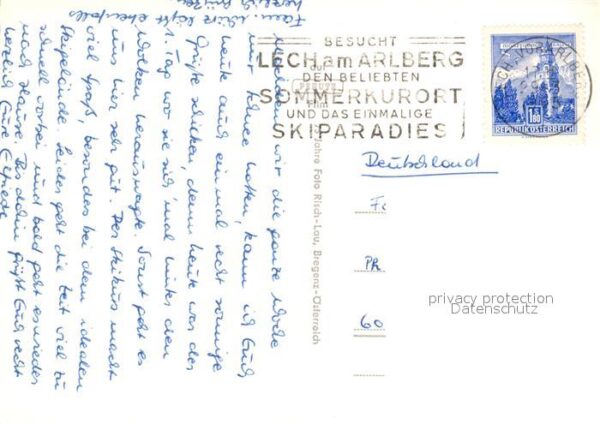 Nachdem wir die ganze Woche
nur Schnee hatten, kann ich Euch
heute auch einmal recht sonnige
Grüße schicken denn heute war der
1. Tag wo sie sich mal hinter den
Wolken herauswagte. Sonst geht es
uns hier sehr gut. Der Skikurs macht
viel Spaß, besonders bei dem idealen
Skigelände. Leider geht die Zeit viel zu
schnell vorbei und bald geht es wieder
nach Hause. Bis dahin grüßt Euch recht
herzlich Eure Elfriede
Fam. läßt ebenfalls
herzlich grüßen
BESUCHT
LECH am ARLBERG
DEN BELIEBTEN
SOMMERKURORT
UND DAS EINMALIGE
SKIPARADIES
LECH, VORARLBERG
S 1.80
REPUBLIK ÖSTERREICH
Jahre Foto Risch-Lau, Bregenz-Österreich
Deutschland
Fs
PR
60
privacy protection
Datenschutz